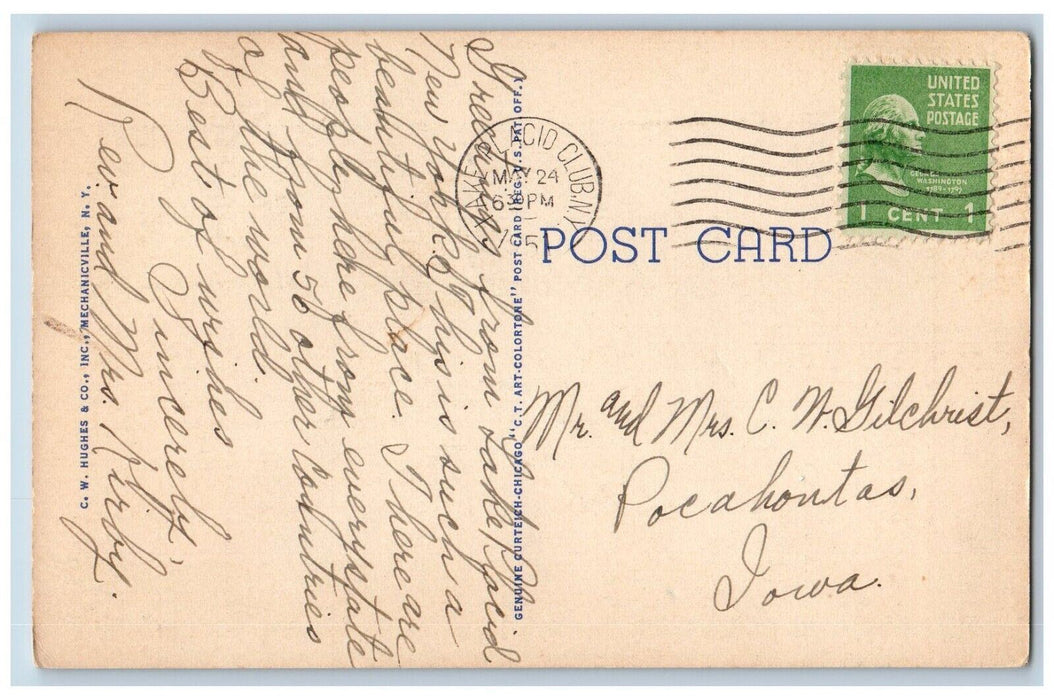 Greetings from Lake Placid
New York. This is such a
beautiful place. There are
people here from every state
and from 56 other countries
of the world.
Best of wishes
Sincerely,
Rev. and Mrs. Kirby.
C. W. HUGHES & CO., INC., MECHANICVILLE, N. Y.
GENUINE CURTEICH-CHICAGO "C.T. ART-COLORTONE" POST CARD (REG. U.S. PAT. OFF.)
LAKE PLACID CLUB. N.Y.
MAY 24
PM
UNITED
STATES
POSTAGE
GEORGE
WASHINGTON
1789-1797
1 CENT 1
POST CARD
Mr. and Mrs. C. W. Gilchrist,
Pocahontas,
Iowa.